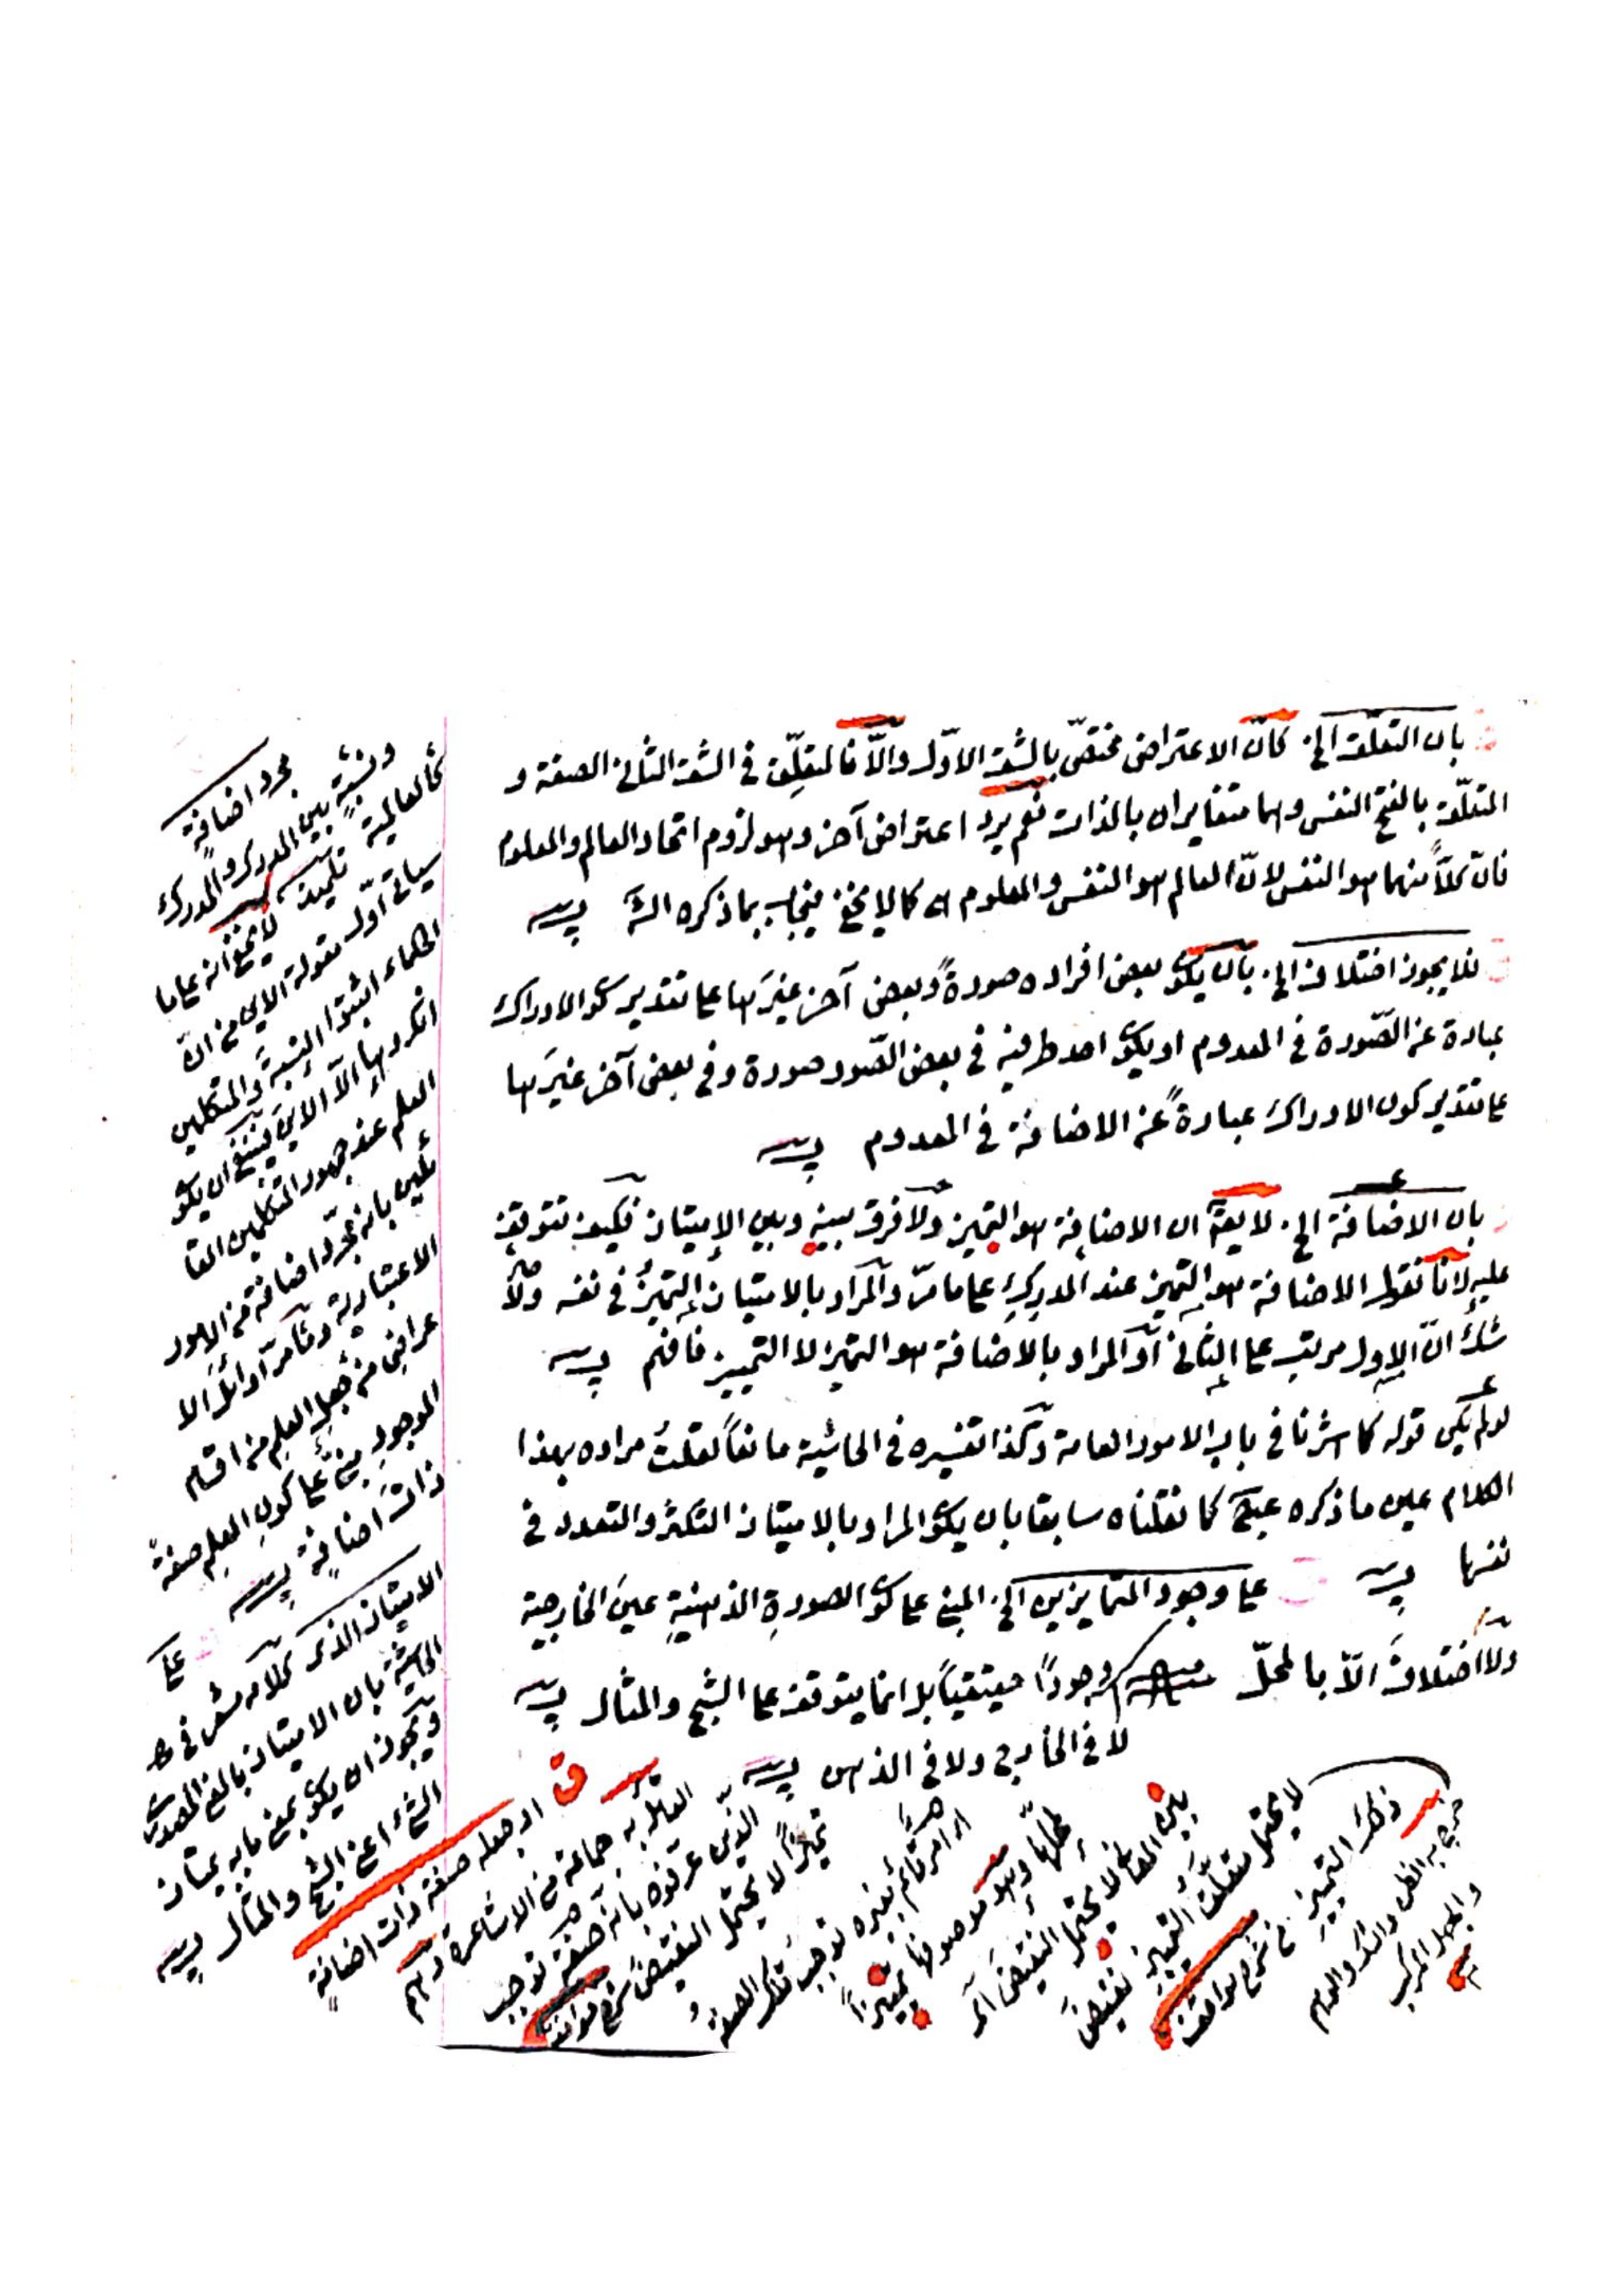 بان التعلّق الخ كانّ الاعتراض مختصّ بالشق الاوّل والّا فالمتعلّق فى الشق الثانى الصفة و
المتعلّق بالفتح النفس وهما متغايران بالذات نعم يرد اعتراض آخر وهو لزوم اتحاد العالم والمعلوم
فانّ كلاً منهما هو النفس لانّ العالم هو النفس والمعلوم كما لا يخفى فيجاب بما ذكره الش
فلا يجوز اختلاف الخ بان يكون بعض افراده صورةً وبعض آخر غيرَها على تقدير كون الادراك
عبارة عن الصّورة فى المعدوم او يكون احد طرفيه فى بعض الصّور صورة وفى بعض آخر غيرَها
على تقدير كون الادراك عبارةً عن الاضافة فى المعدوم
بان الاضافة الخ لا يقال ان الاضافة هو التميز ولا فرق بينه وبين الامتياز فكيف تتوقف
عليه لانا نقول الاضافة هو التميز عند المدرِكِ على ما مرّ والمراد بالامتياز التميّزُ فى نفسه ولا
شك انّ الاول مرتب على الثانى او المراد بالاضافة هو التميز لا التمييز فافهم
لو لم يكن قوله كما اشرنا فى باب الامور العامة وكذا تفسيره فى الحاشية مانعاً لقلتُ مراده بهذا
الكلام عين ما ذكره كما نقلناه سابقا بان يكون المراد بالامتياز التكثر والتعدد فى
نفسها
على وجود المتمايزين الخ المبنى على كون الصورةِ الذهنيةِ عينَ الخارجية
ولا اختلافَ الّا بالمحلّ وجودًا حقيقياً بل انما يتوقف على الشبح والمثال
لا فى الخارج ولا فى الذهن
مجرد اضافةٍ
ونسبةٍ بين المدرِك والمدرَك
كالعالمية
لا يخفى انه على ما
سياتى اوّل مقولة الاين من انّ
الحكماء اثبتوا النسبة والمتكلمين
انكروها الّا الاين فينبغى ان يكون
العلم عند جمهور المتكلمين القا
ئلين بانه مجرّد اضافة من الامور
الاعتبارية وما مرّ اوائل الا
عراض من جعل العلم من اقسام
الموجود مبنىٌّ على كون العلم صفةً
ذات اضافةٍ
على
الامتياز الذى كلامه فى
الحاشية بان الامتياز بالمعنى المصدرى
ويجوز ان يكون بمعنى ما به يمتاز
الشئ اعنى الشبح والمثال
اى جعله صفة ذات اضافةٍ
القائل به جماعة من الاشاعرة وهم
الّذين عرّفوه بانه صفة توجب
تميزاً لا يحتمل النقيض شرح مواقف
اى امر قائم بغيره توجب تلك الصفةُ
لمحلّها وهو موصوفها تميزاً
بين المعانى لا يحتمل النقيض اى
لا يحتمل متعلَّق التميز نقيضَ
ذلك التميز شرح مواقف
خرج به الظن والشك والوهم
والجهل المركب